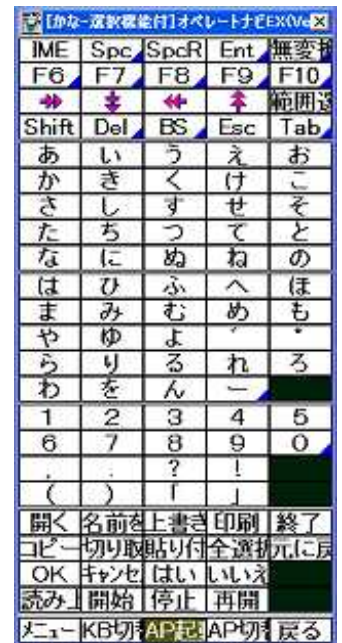 [かな-選択機能付]オペレートナビEX(Ve
IME Spc SpcR Ent 無変換
F6 F7 F8 F9 F10
範囲選
Shift Del BS Esc Tab
あ い う え お
か き く け こ
さ し す せ そ
た ち つ て と
な に ぬ ね の
は ひ ふ へ ほ
ま み む め も
や ゆ よ ゛ ゜
ら り る れ ろ
わ を ん ー
1 2 3 4 5
6 7 8 9 0
. : ? !
( ) 「 」
開く 名前を 上書き 印刷 終了
コピー 切り取 貼り付 全選択 元に戻
OK キャンセ はい いいえ
読み上 開始 停止 再開
メニュー KB切替 AP起動 AP切替 戻る